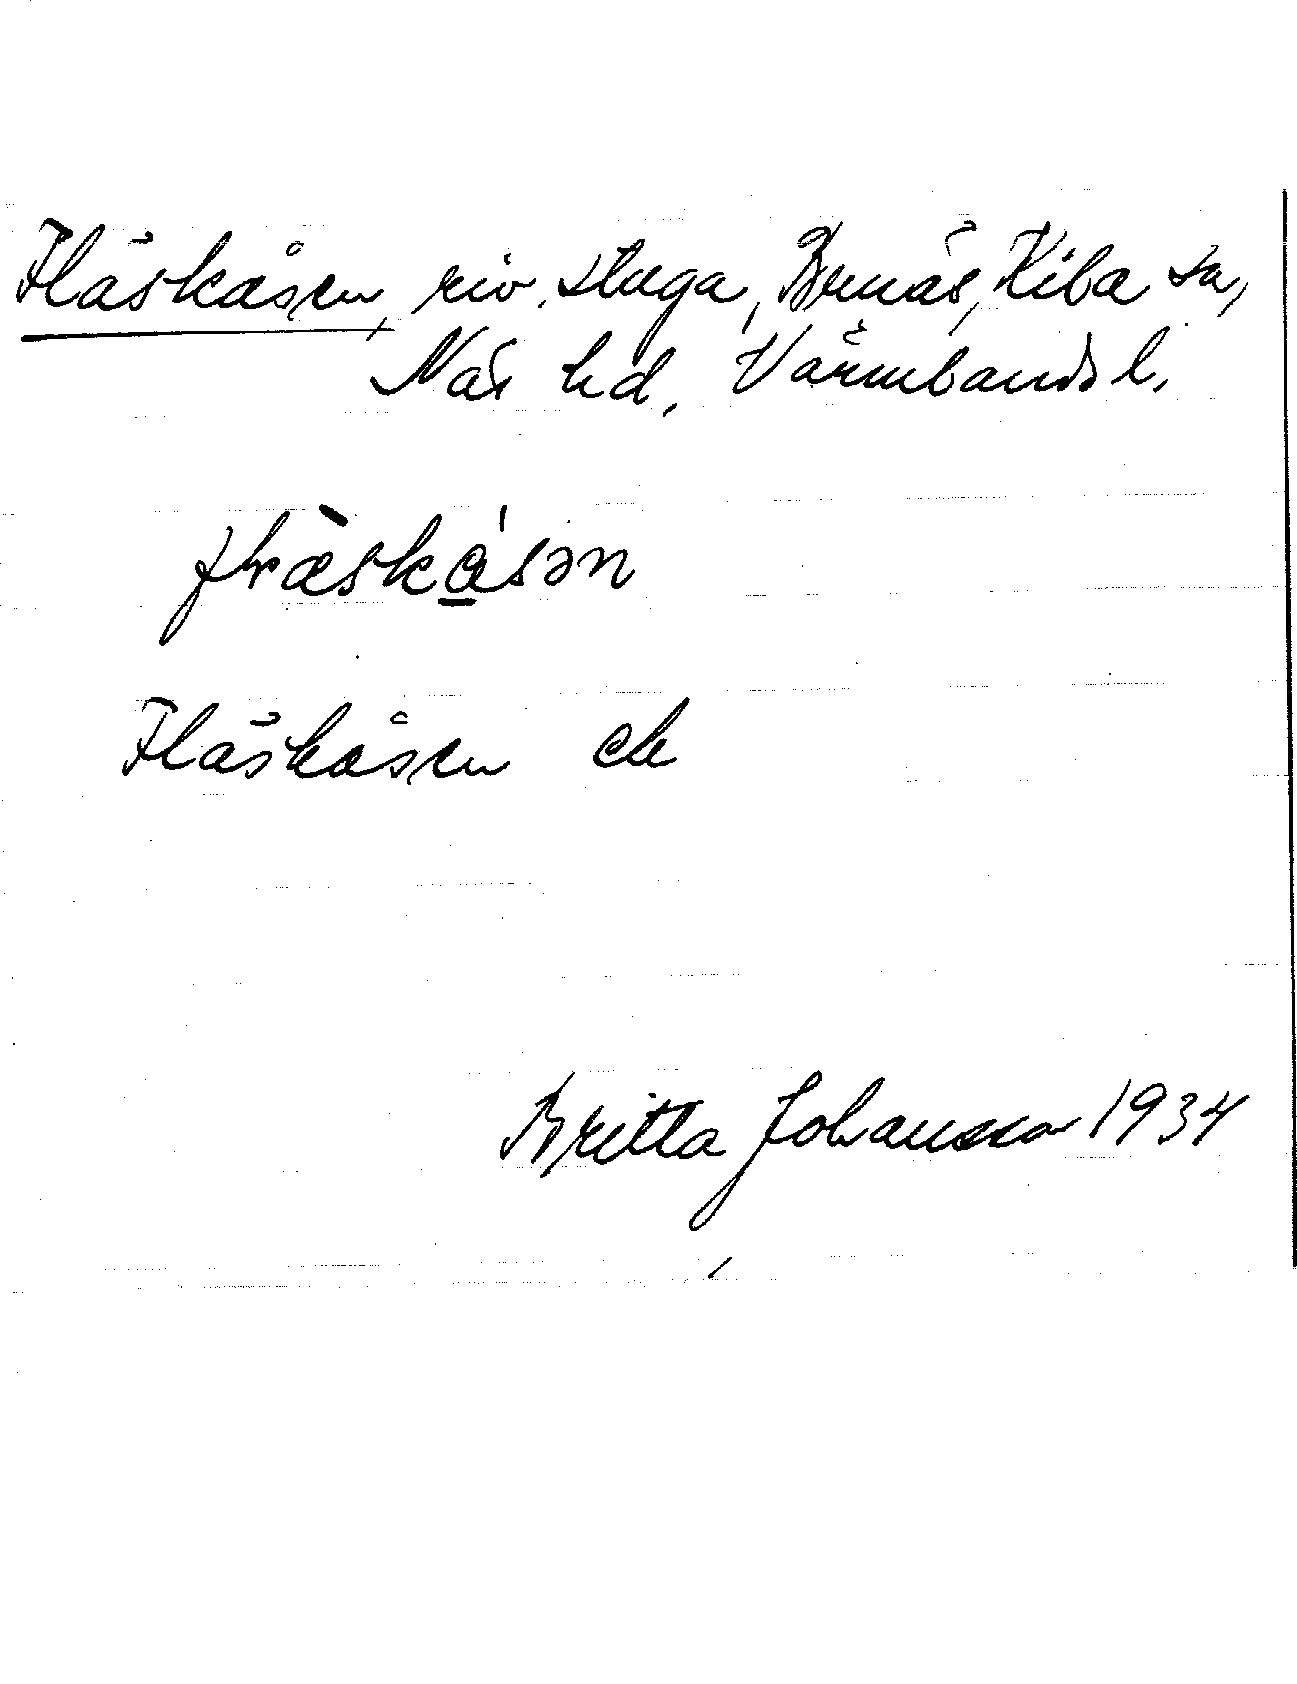 Fläskåsen, riv. stuga, Brunäs, Kila sn,
Näs hd, Värmlands l.
fłæ̀skǻ̱sən
Fläskåsen ek
Britta Johansson 1934